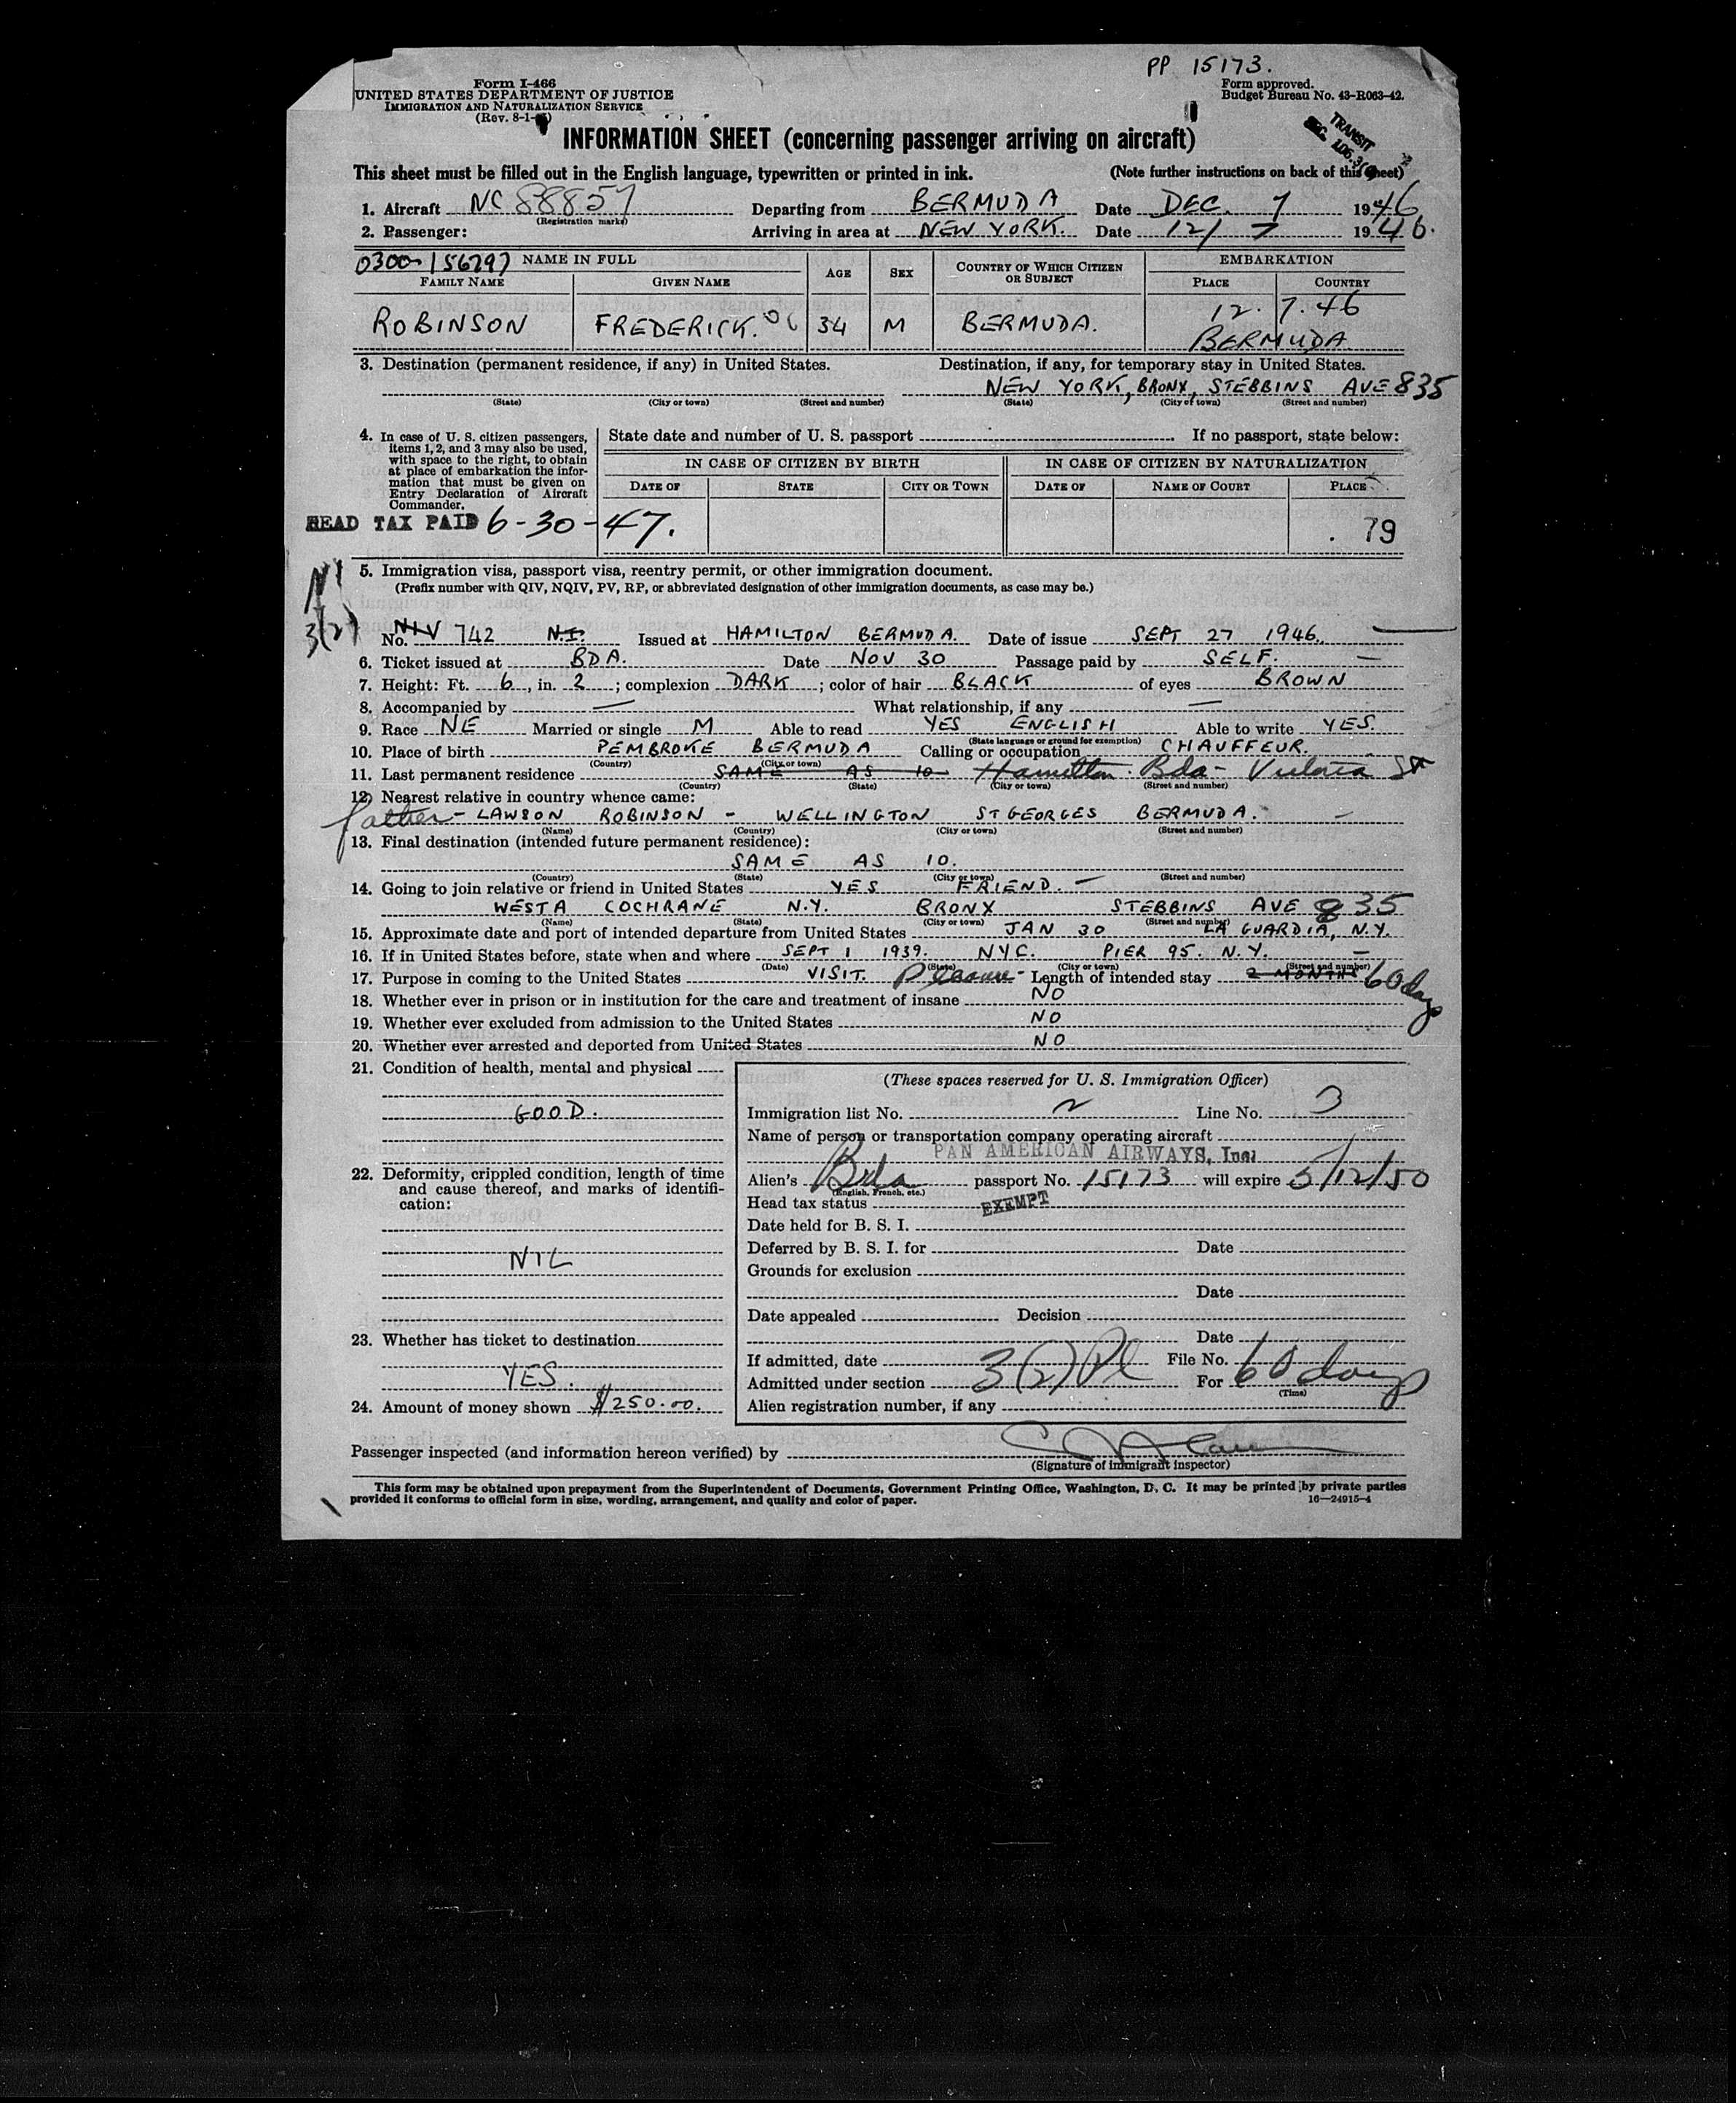 PP 15173.
Form I-466
UNITED STATES DEPARTMENT OF JUSTICE
IMMIGRATION AND NATURALIZATION SERVICE
(Rev. 8-1-
Form approved.
Budget Bureau No. 43-R063-42.
TRANSIT
SEC. 106.3(
INFORMATION SHEET (concerning passenger arriving on aircraft)
This sheet must be filled out in the English language, typewritten or printed in ink. (Note further instructions on back of this sheet)
1. Aircraft NC 88857 Departing from BERMUDA Date DEC. 7 1946
(Registration marks)
2. Passenger: Arriving in area at NEW YORK. Date 12/ 7 1946.
0300-156797 NAME IN FULL AGE SEX COUNTRY OF WHICH CITIZEN OR SUBJECT EMBARKATION
FAMILY NAME GIVEN NAME PLACE COUNTRY
12. 7. 46
ROBINSON FREDERICK. 34 M BERMUDA. BERMUDA
3. Destination (permanent residence, if any) in United States. Destination, if any, for temporary stay in United States.
NEW YORK, BRONX, STEBBINS AVE 835
(State) (City or town) (Street and number) (State) (City of town) (Street and number)
4. In case of U. S. citizen passengers, items 1, 2, and 3 may also be used, with space to the right, to obtain at place of embarkation the information that must be given on Entry Declaration of Aircraft Commander.
State date and number of U. S. passport If no passport, state below:
IN CASE OF CITIZEN BY BIRTH IN CASE OF CITIZEN BY NATURALIZATION
DATE OF STATE CITY OR TOWN DATE OF NAME OF COURT PLACE
HEAD TAX PAID 6-30-47. 79
5. Immigration visa, passport visa, reentry permit, or other immigration document.
(Prefix number with QIV, NQIV, PV, RP, or abbreviated designation of other immigration documents, as case may be.)
3(2)
No. NIV 742 N.I. Issued at HAMILTON BERMUDA. Date of issue SEPT 27 1946.
6. Ticket issued at BDA. Date NOV 30 Passage paid by SELF. —
7. Height: Ft. 6, in. 2; complexion DARK; color of hair BLACK of eyes BROWN
8. Accompanied by — What relationship, if any —
9. Race NE Married or single M Able to read YES ENGLISH Able to write YES.
(State language or ground for exemption)
10. Place of birth PEMBROKE BERMUDA Calling or occupation CHAUFFEUR.
(Country) (City or town)
11. Last permanent residence SAME AS 10 Hamilton. Bda- Victoria St
(Country) (State) (City or town) (Street and number)
12. Nearest relative in country whence came:
father - LAWSON ROBINSON - WELLINGTON ST GEORGES BERMUDA. —
(Name) (Country) (City or town) (Street and number)
13. Final destination (intended future permanent residence):
SAME AS 10.
(Country) (State) (City or town) (Street and number)
14. Going to join relative or friend in United States YES FRIEND. —
WESTA COCHRANE N.Y. BRONX STEBBINS AVE 835
(Name) (State) (City or town) (Street and number)
15. Approximate date and port of intended departure from United States JAN 30 LA GUARDIA, N.Y.
16. If in United States before, state when and where SEPT 1 1939. NYC. PIER 95. N.Y. —
(Date) (State) (City or town) (Street and number)
17. Purpose in coming to the United States VISIT. Pleasure - Length of intended stay 2 MONTHS 60 days
18. Whether ever in prison or in institution for the care and treatment of insane NO
19. Whether ever excluded from admission to the United States NO
20. Whether ever arrested and deported from United States NO
21. Condition of health, mental and physical
GOOD.
22. Deformity, crippled condition, length of time and cause thereof, and marks of identification:
NIL
23. Whether has ticket to destination
YES.
24. Amount of money shown $250.00.
(These spaces reserved for U. S. Immigration Officer)
Immigration list No. 2 Line No. 3
Name of person or transportation company operating aircraft
PAN AMERICAN AIRWAYS, Inc.
Alien's Bda passport No. 15173 will expire 5/12/50
(English, French, etc.)
Head tax status EXEMPT
Date held for B. S. I.
Deferred by B. S. I. for Date
Grounds for exclusion
Date
Date appealed Decision
Date
If admitted, date File No.
Admitted under section 3(2) Pl For 60 days
(Time)
Alien registration number, if any
Passenger inspected (and information hereon verified) by
(Signature of immigrant inspector)
This form may be obtained upon prepayment from the Superintendent of Documents, Government Printing Office, Washington, D. C. It may be printed by private parties
provided it conforms to official form in size, wording, arrangement, and quality and color of paper. 16—24915-4